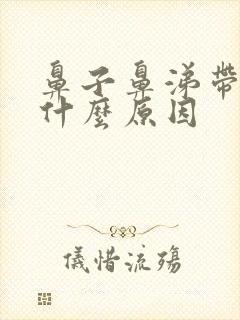 鼻子鼻涕帶
什麼原因
儀惜流殤